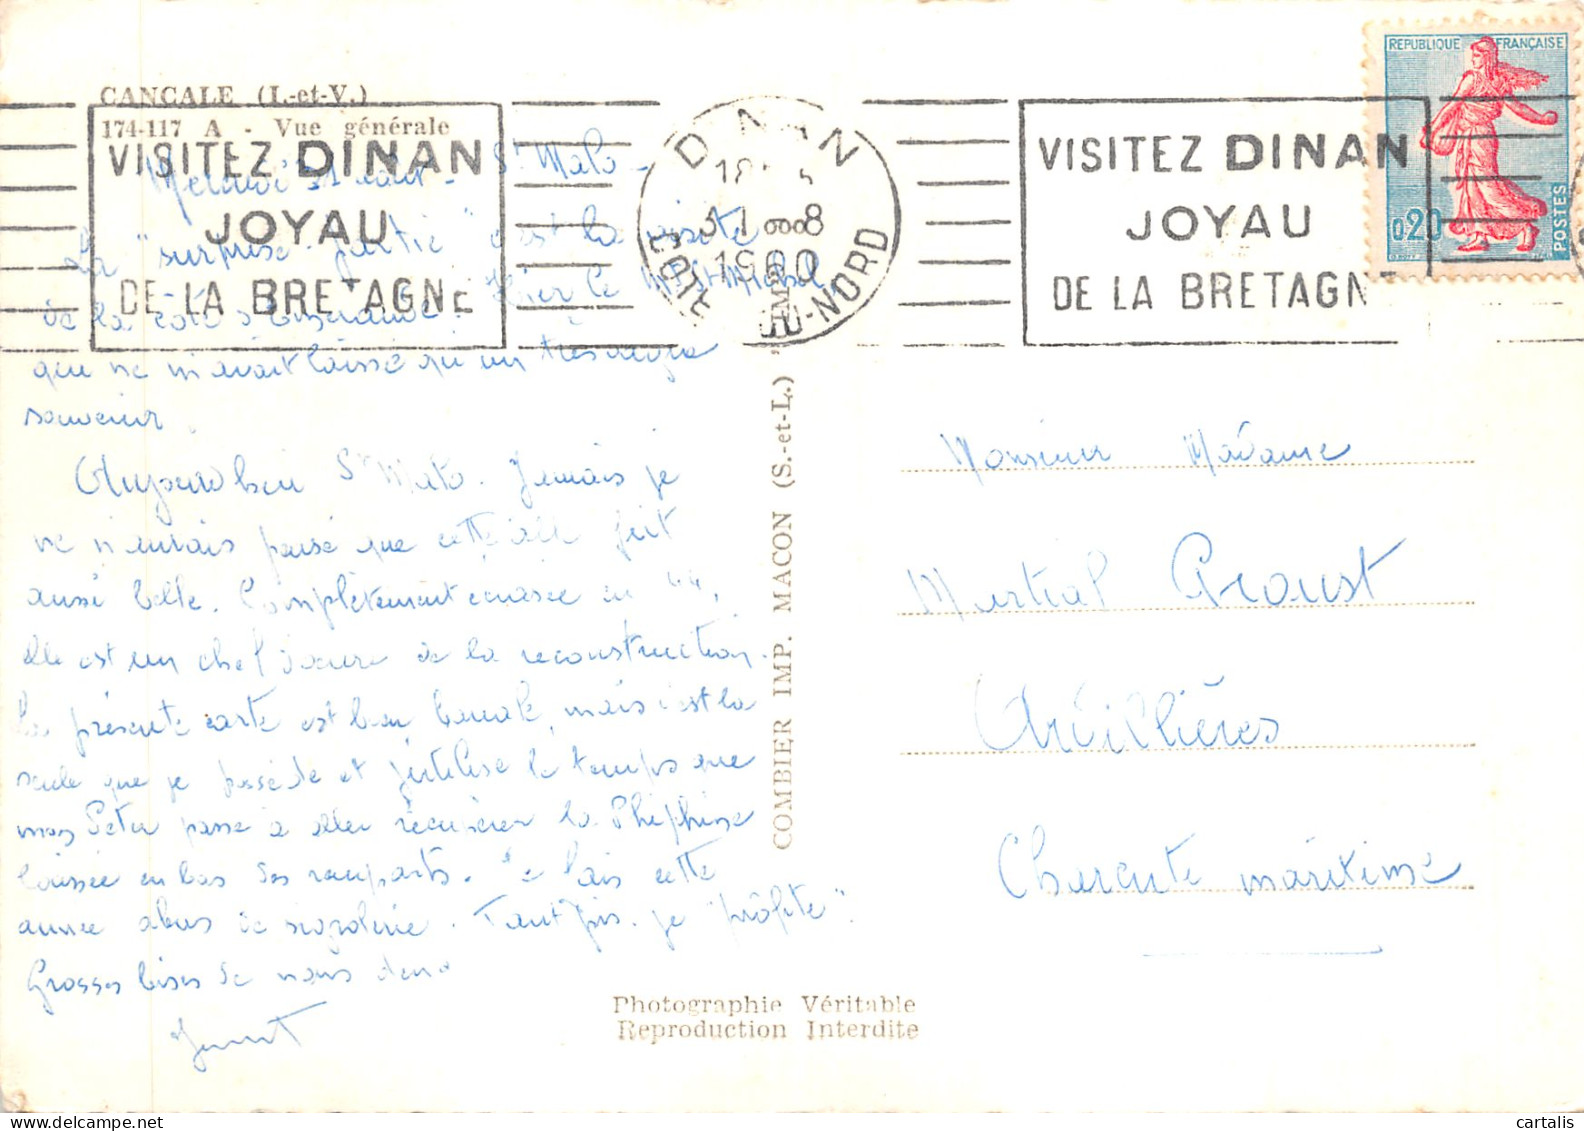 CANCALE (I.-et-V.)
174-117 A - Vue générale
VISITEZ DINAN
JOYAU
DE LA BRETAGNE
DINAN
18
31 8
1960
COTES-DU-NORD
VISITEZ DINAN
JOYAU
DE LA BRETAGN
REPUBLIQUE FRANÇAISE
0,20
POSTES
Mercredi 31 août - St Malo -
La "surprise partie" c'est la visite
de la côte d'Emeraude. Hier le Mt St Michel,
qui ne m'avait laissé qu'un très vague
souvenir.
Aujourd'hui St Malo. Jamais je
ne n'aurais pensé que cette ville fût
aussi belle. Complètement écrasée en 44,
elle est un chef d'oeuvre de la reconstruction.
La présente carte est bien banale, mais c'est la
seule que je possède et j'utilise le temps que
mon Peter passe à aller récupérer la
laissée en bas des remparts. Je fais cette
année abus de . Tant pis. je "profite".
Grosses bises de nous deux
COMBIER IMP. MACON (S.-et-L.)
Monsieur Madame
Martial Proust
Ardillières
Charente maritime
Photographie Véritable
Reproduction Interdite
cartalis